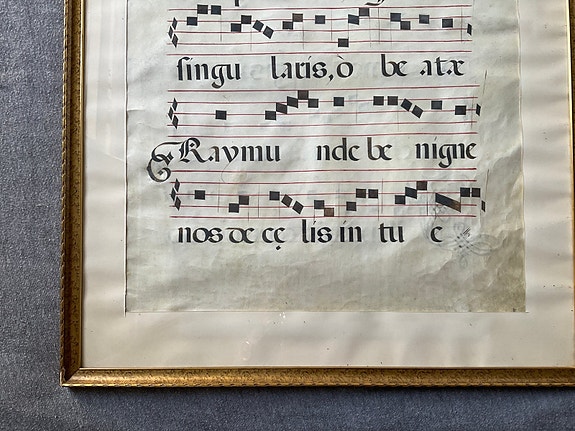 singu laris, ò be atæ
Raymu nde be nigne
nos de cę lis in tu e